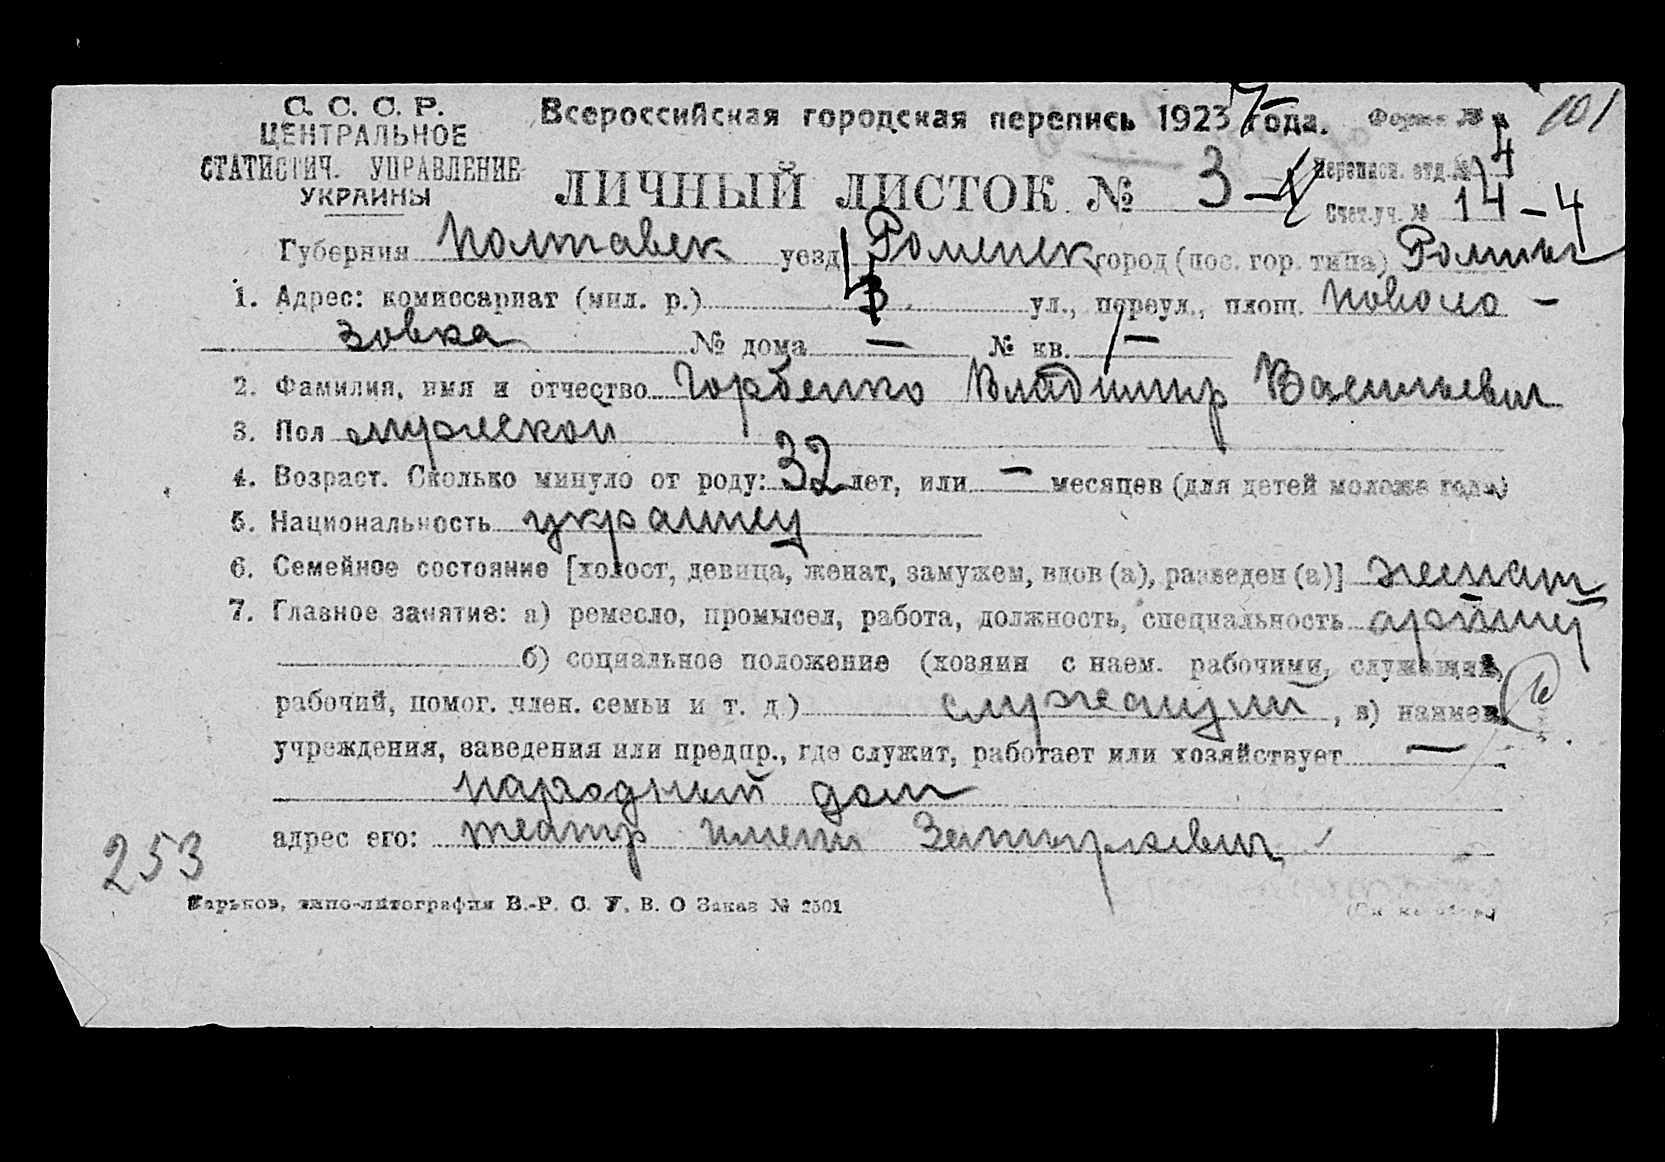 С. С. С. Р.
ЦЕНТРАЛЬНОЕ
СТАТИСТИЧ. УПРАВЛЕНИЕ
УКРАИНЫ
Всероссийская городская перепись 1923 года.
Форма №
101
ЛИЧНЫЙ ЛИСТОК № 3-
Переписн. отд. № 4
Счет. уч. № 14-4
Губерния Полтавск уезд Роменск город (пос. гор. типа) Ромны
1. Адрес: комиссариат (мил. р.) ул., переул., площ. Новоло-
зовка № дома — № кв. —
2. Фамилия, имя и отчество Горбенко Владимир Васильевич
3. Пол мужской
4. Возраст. Сколько минуло от роду: 32 лет, или — месяцев (для детей моложе года)
5. Национальность украинец
6. Семейное состояние [холост, девица, женат, замужем, вдов (а), разведен (а)] женат
7. Главное занятие: а) ремесло, промысел, работа, должность, специальность
б) социальное положение (хозяин с наем. рабочими, служащий,
рабочий, помог. член. семьи и т. д.) служащий, в) наимен.
учреждения, заведения или предпр., где служит, работает или хозяйствует —
народный дом
адрес его: театр имени
253
Харьков, типо-литография В.-Р. С. У. В. О Заказ № 2501